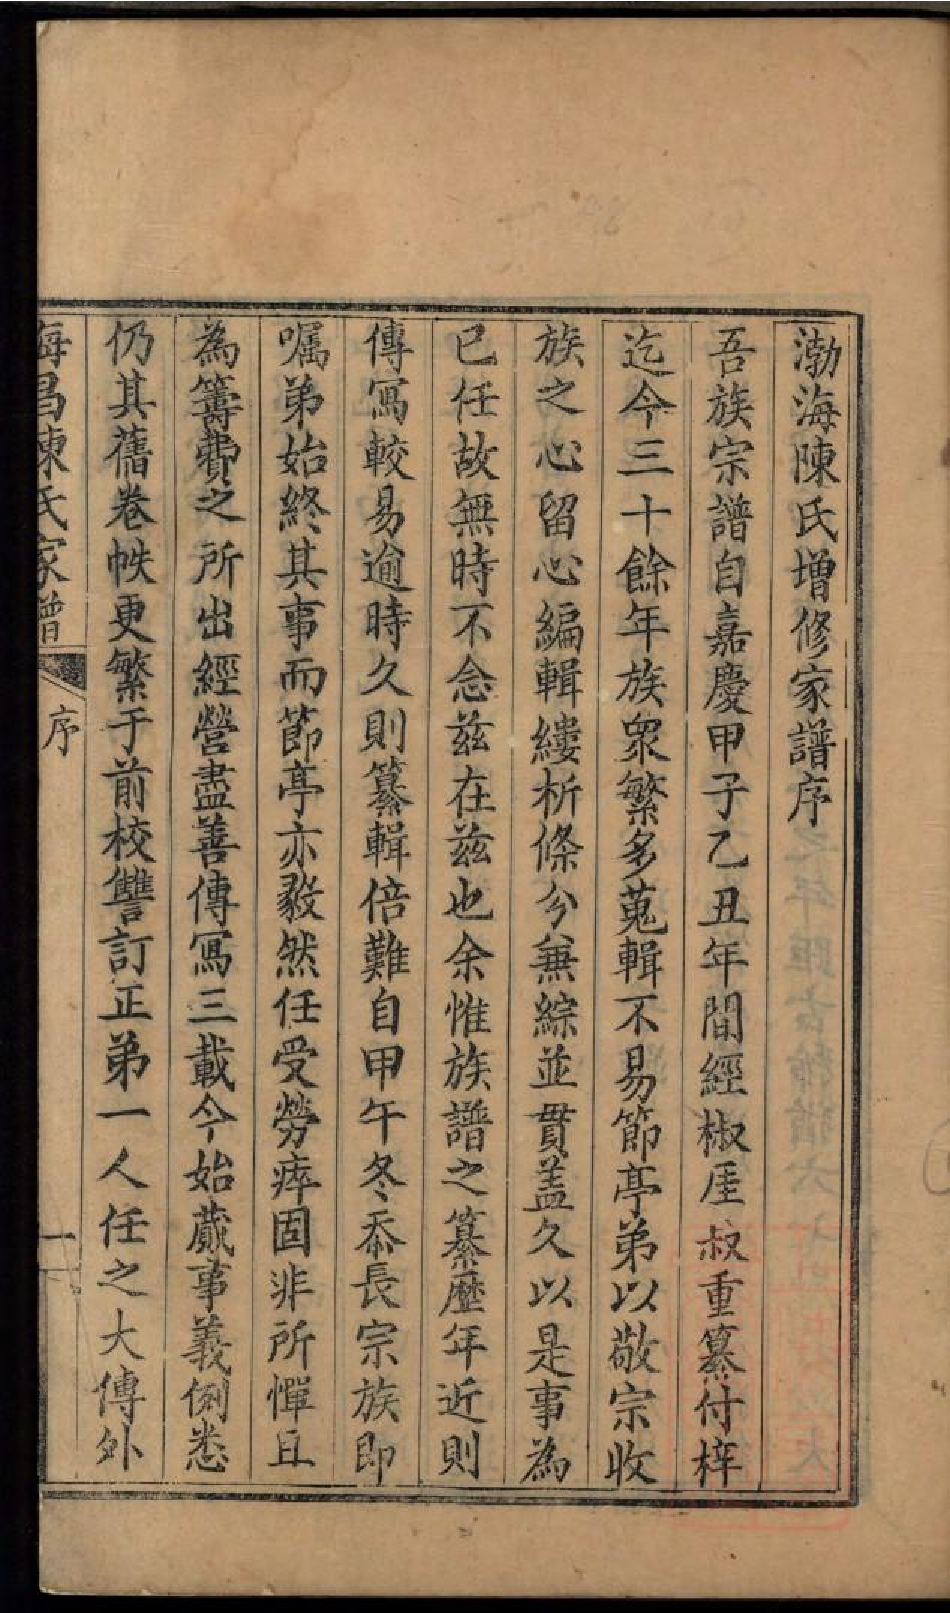 渤海陳氏增修家譜序
吾族宗譜自嘉慶甲子乙丑年間經椒厓叔重纂付梓
迄今三十餘年族眾繁多蒐輯不易節亭弟以敬宗收
族之心留心編輯縷析條分兼綜並貫蓋久以是事為
已任故無時不念兹在兹也余惟族譜之纂歷年近則
傳寫較易逾時久則纂輯倍難自甲午冬忝長宗族即
囑弟始終其事而節亭亦毅然任受勞瘁固非所憚且
為籌費之所出經營盡善傳寫三載今始蕆事義例悉
仍其舊卷帙更繁于前校讐訂正弟一人任之大傳外
海昌陳氏家譜 序 一